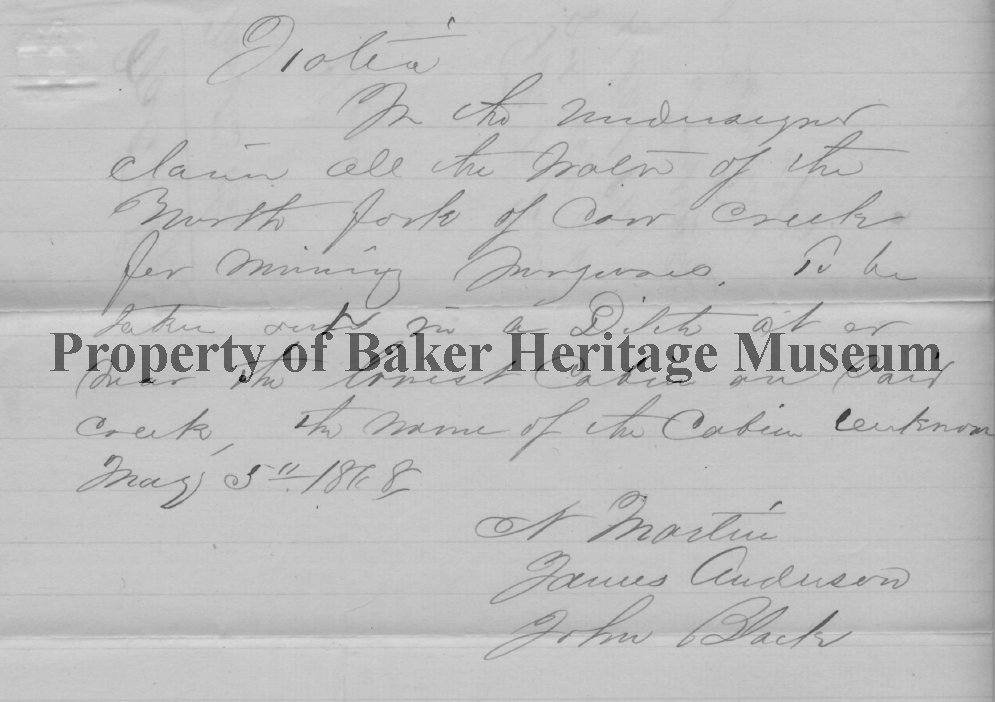 Notice
We the undersigned
claim all the Water of the
North fork of Cow Creek
for Mining Purposes. To be
taken out in a Ditch at or
Property of Baker Heritage Museum
near the lowest Cabin on Said
Creek, the name of the Cabin unknown
May 5" 1868
N Martin
James Anderson
John Black